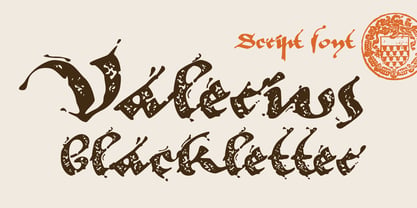 Script font
Valerius
Blackletter